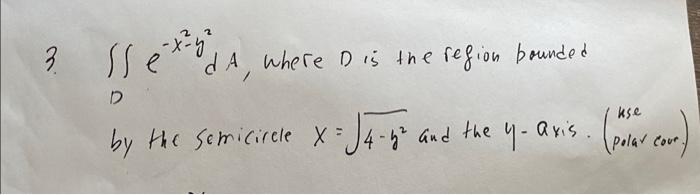 3. ∬ e^{-x²-y²} dA, where D is the region bounded
D
by the semicircle x = √(4-y²) and the y-axis. (use polar coor.)